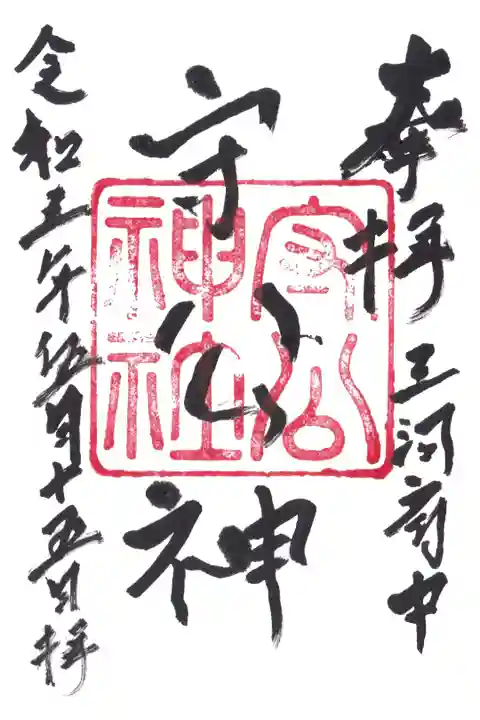 奉拝 三河府中
守公神
守公
神社
令和五年伍月十五日拝